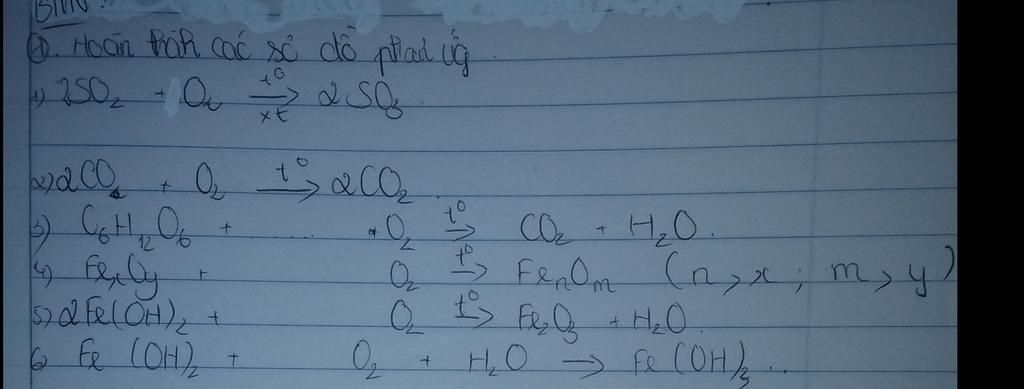 BTVN:
①. Hoàn thành các sơ đồ phản ứg
1) 2SO₂ + O₂ →(t⁰, xt) 2SO₃.
2) 2CO + O₂ →(t⁰) 2CO₂.
3) C₆H₁₂O₆ + ...... O₂ →(t⁰) CO₂ + H₂O.
4) FeₓOᵧ + O₂ →(t⁰) FeₙOₘ (n > x ; m > y)
5) 2Fe(OH)₂ + O₂ →(t⁰) Fe₂O₃ + H₂O.
6) Fe(OH)₂ + O₂ + H₂O → Fe(OH)₃..